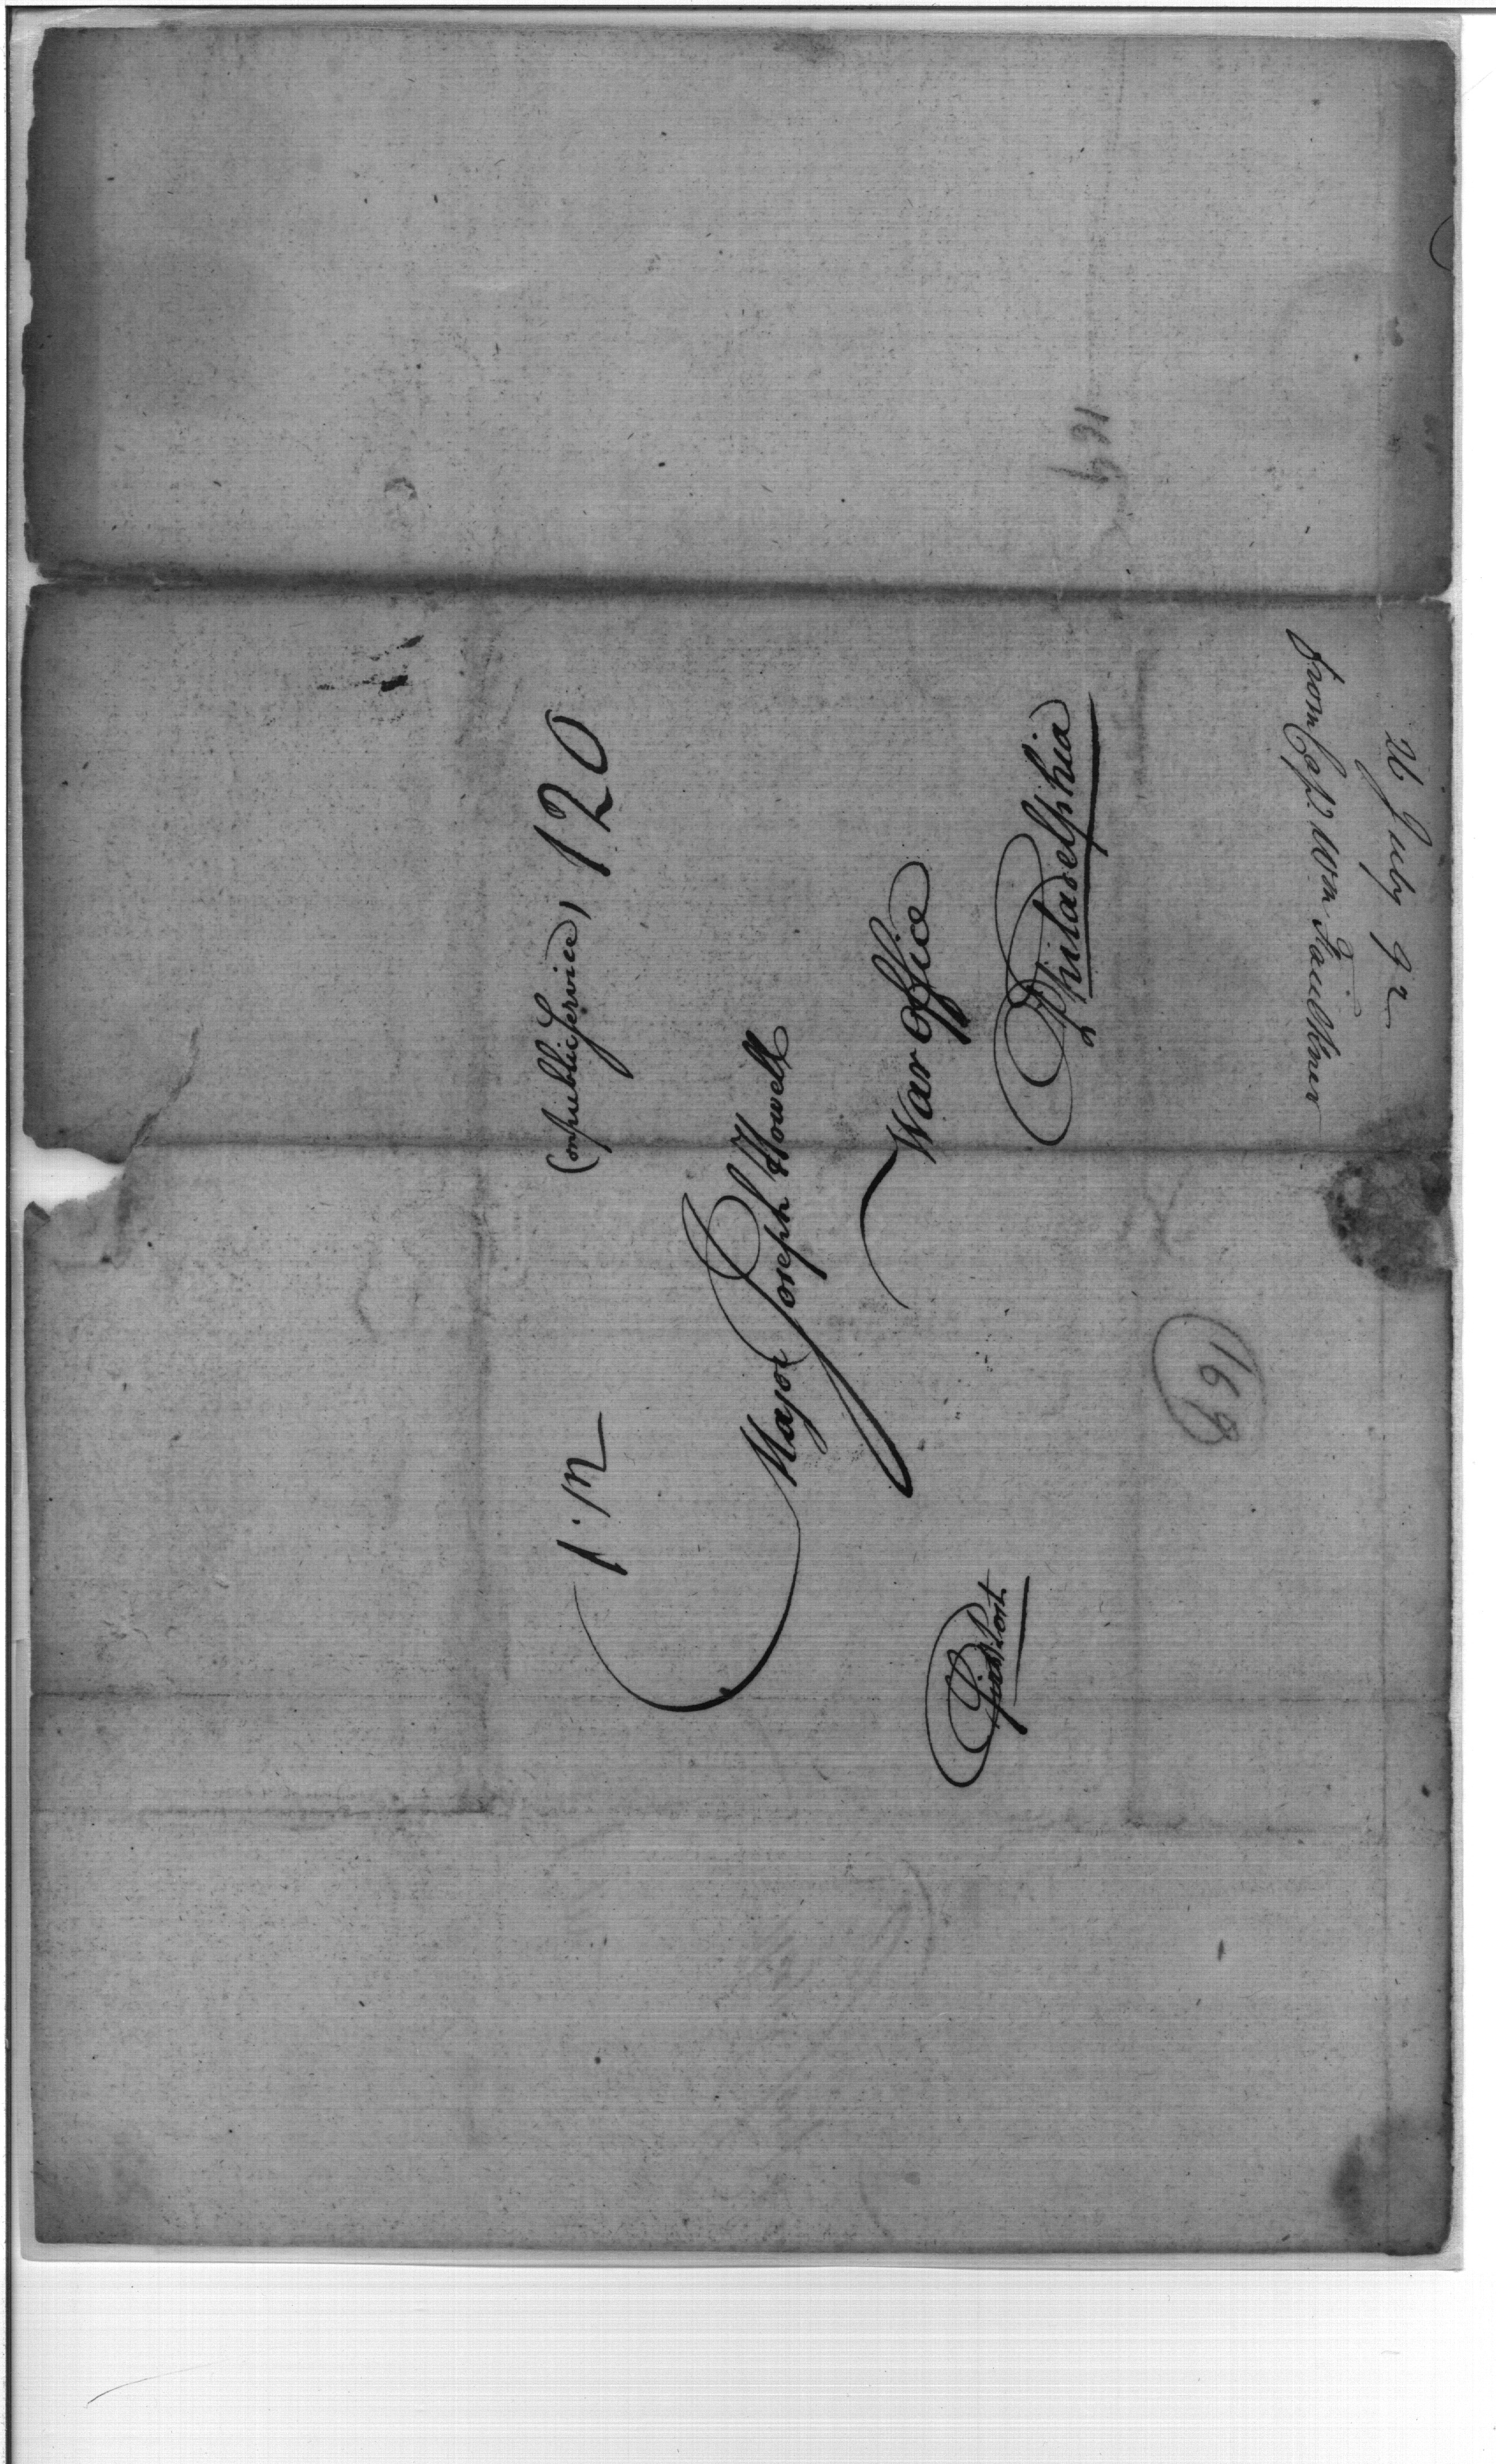 (on public Service) 120
Major Joseph Howell
War Office
Philadelphia
26 July 92
from Capt. Wm Faulkner
169
169